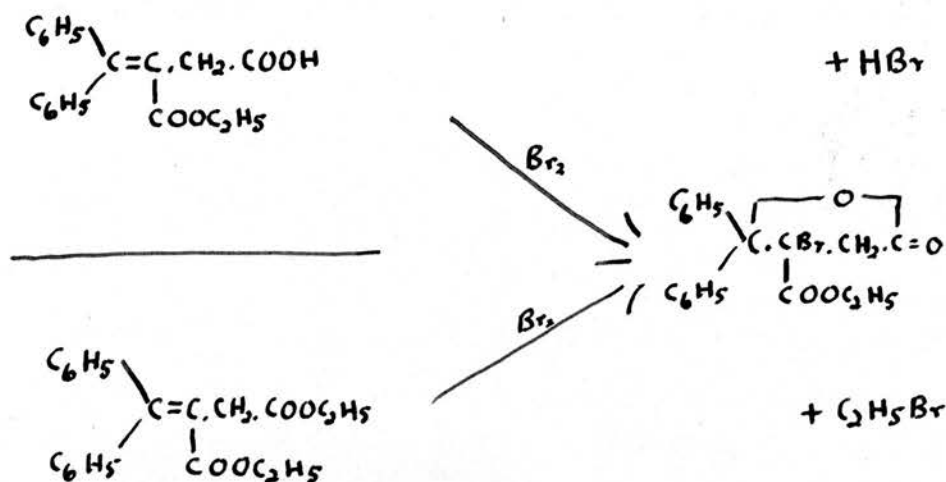 C₆H₅
C=C.CH₂.COOH
C₆H₅
COOC₂H₅
+ HBr
Br₂
O
C₆H₅
C.CBr.CH₂.C=O
C₆H₅
COOC₂H₅
Br₂
C₆H₅
C=C.CH₂.COOC₂H₅
C₆H₅
COOC₂H₅
+ C₂H₅Br